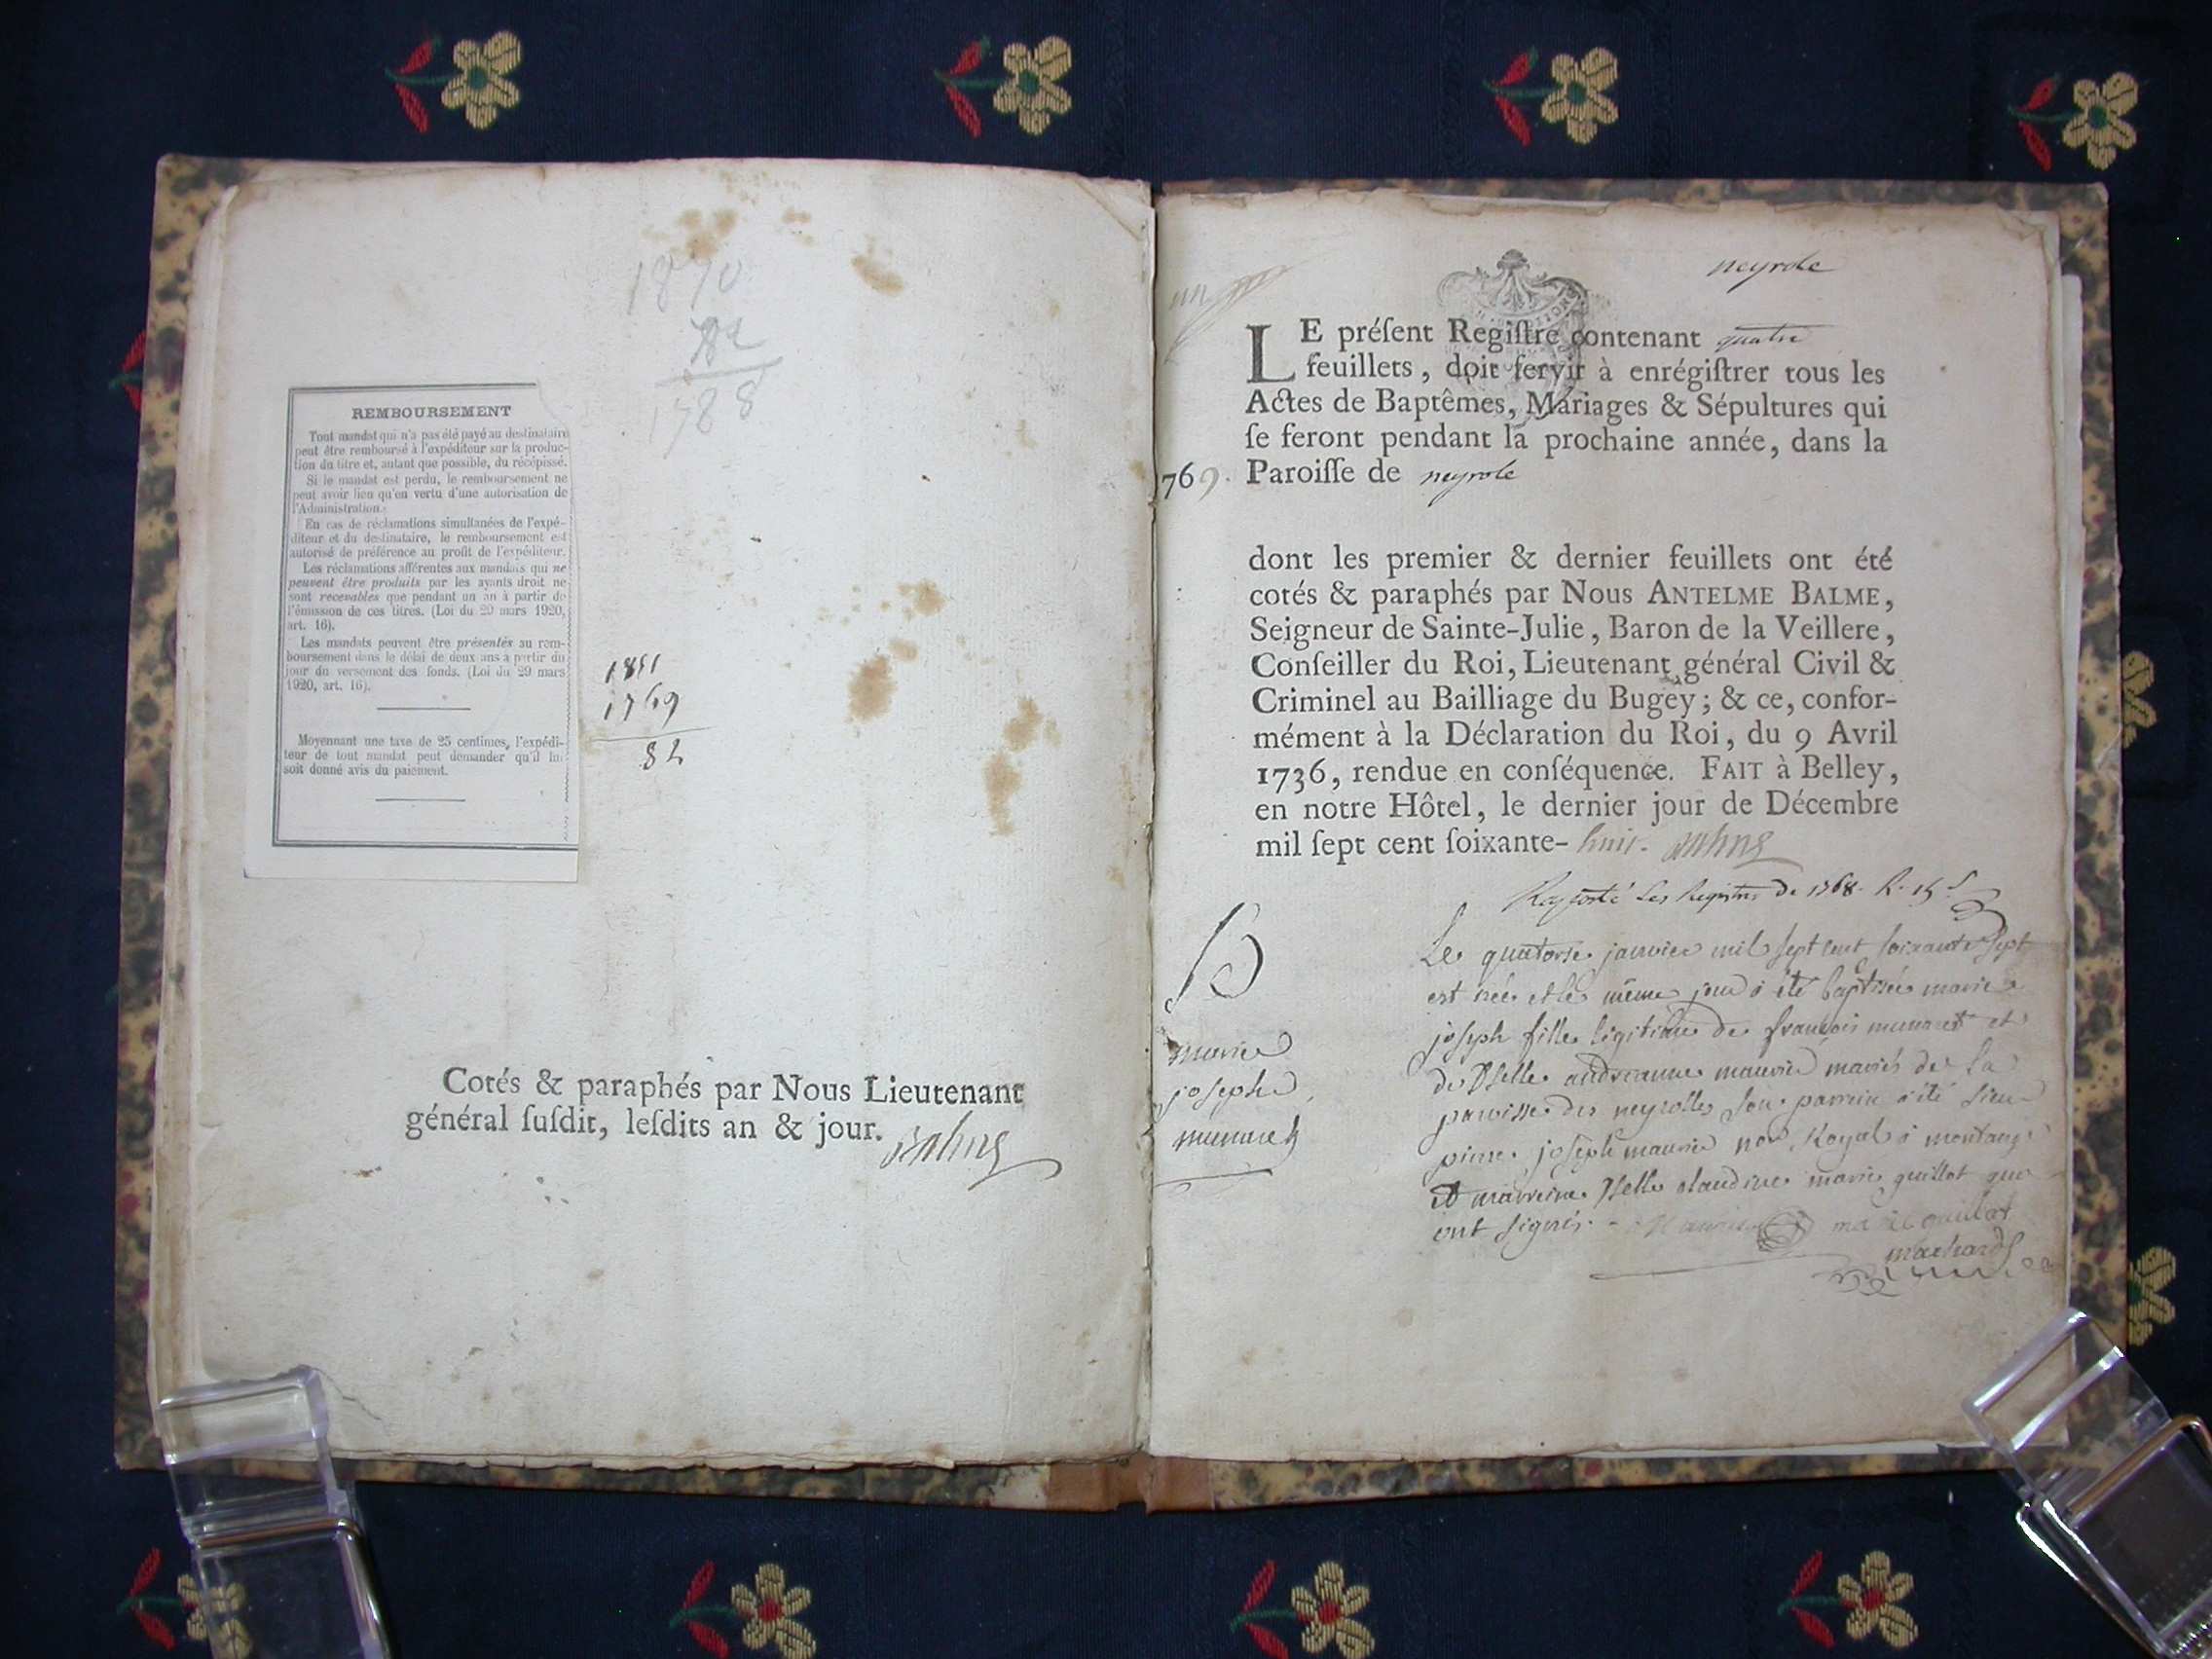 1870
82
1788
REMBOURSEMENT
Tout mandat qui n'a pas été payé au destinataire
peut être remboursé à l'expéditeur sur la produc-
tion du titre et, autant que possible, du récépissé.
Si le mandat est perdu, le remboursement ne
peut avoir lieu qu'en vertu d'une autorisation de
l'Administration.
En cas de réclamations simultanées de l'expé-
diteur et du destinataire, le remboursement est
autorisé de préférence au profit de l'expéditeur.
Les réclamations afférentes aux mandats qui ne
peuvent être produits par les ayants droit ne
sont recevables que pendant un an à partir de
l'émission de ces titres. (Loi du 29 mars 1920,
art. 16).
Les mandats peuvent être présentés au rem-
boursement dans le délai de deux ans à partir du
jour du versement des fonds. (Loi du 29 mars
1920, art. 16).
Moyennant une taxe de 25 centimes, l'expédi-
teur de tout mandat peut demander qu'il lui
soit donné avis du paiement.
1851
1769
82
Cotés & paraphés par Nous Lieutenant
général ſuſdit, leſdits an & jour.
neyrole
LE préſent Regiſtre contenant quatre
feuillets, doit ſervir à enrégiſtrer tous les
Actes de Baptêmes, Mariages & Sépultures qui
ſe feront pendant la prochaine année, dans la
769. Paroiſſe de neyrole
dont les premier & dernier feuillets ont été
cotés & paraphés par Nous ANTELME BALME,
Seigneur de Sainte-Julie, Baron de la Veillere,
Conſeiller du Roi, Lieutenant général Civil &
Criminel au Bailliage du Bugey; & ce, confor-
mément à la Déclaration du Roi, du 9 Avril
1736, rendue en conſéquence. FAIT à Belley,
en notre Hôtel, le dernier jour de Décembre
mil ſept cent ſoixante-huit.
Rapporté Les Registres de 1768
B
marie
josephe
munaret
Le quatorse janvier mil sept cent soixante sept
est née et le même jour a été baptisée marie
joseph fille légitime de françois munaret et
de Dselle andreanne maurier mariés de la
paroisse des neyrolles son parrein a été sieur
pierre joseph maurier not. Royal a montange
et marreine Dselle claudine marie guillot qui
ont signés.
marie guillot
machard